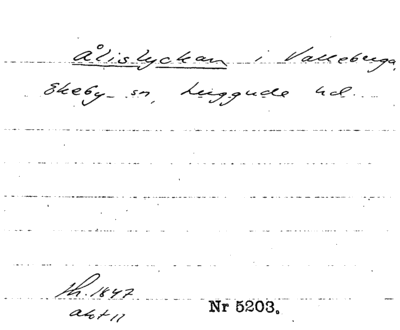 Ålislyckan i Valleberga,
Ekeby sn, Luggude hd.
sk. 1847
akt 11
Nr 5203.